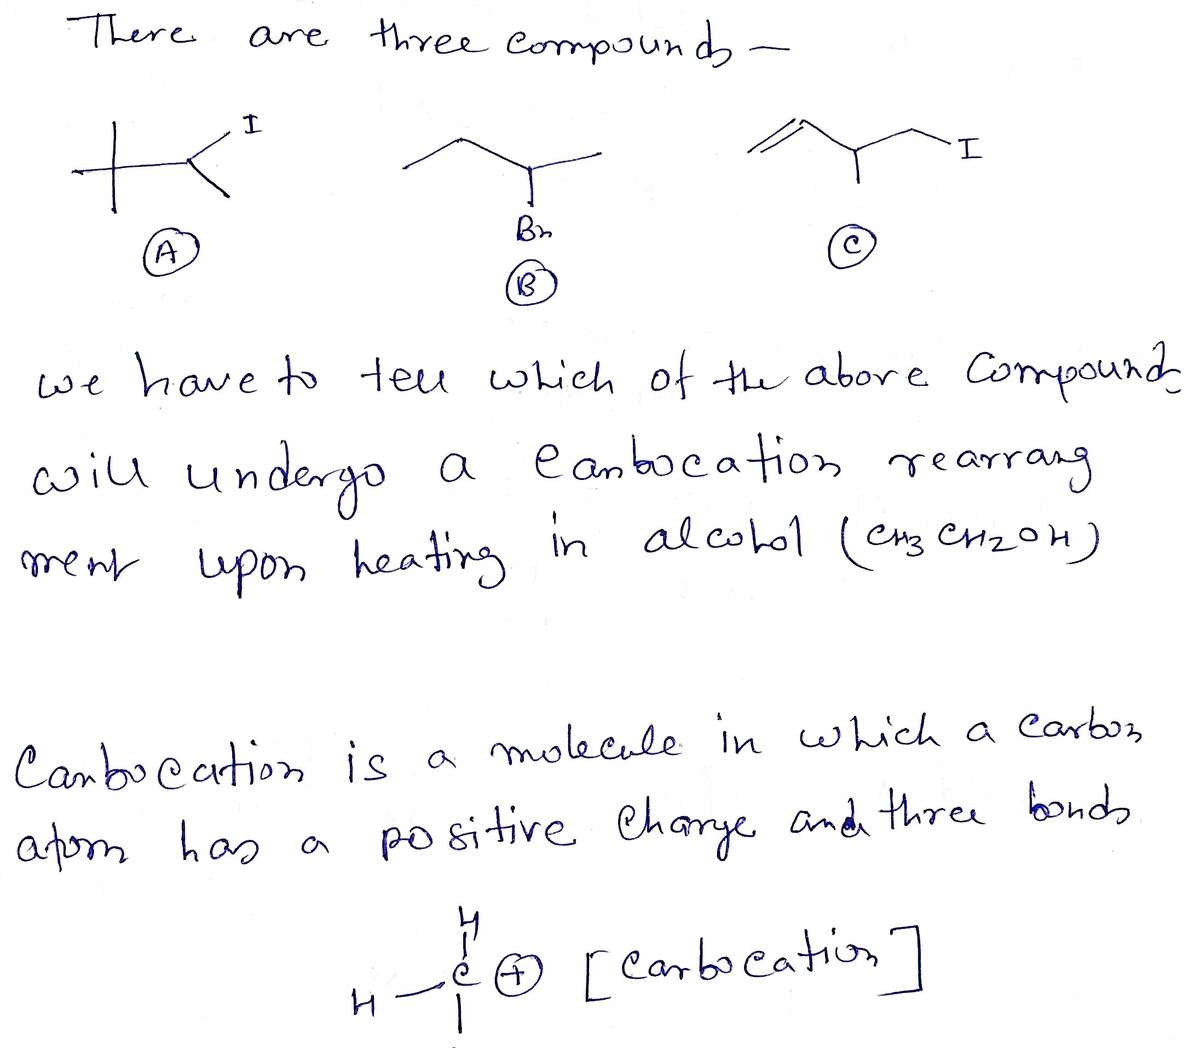 There are three compounds –
I
I
Br
A
B
C
we have to tell which of the above Compounds
will undergo a carbocation rearrang
ment upon heating in alcohol (CH3 CH2OH)
Carbocation is a molecule in which a carbon
atom has a positive charge and three bonds
H
H – C ⊕ [carbocation]